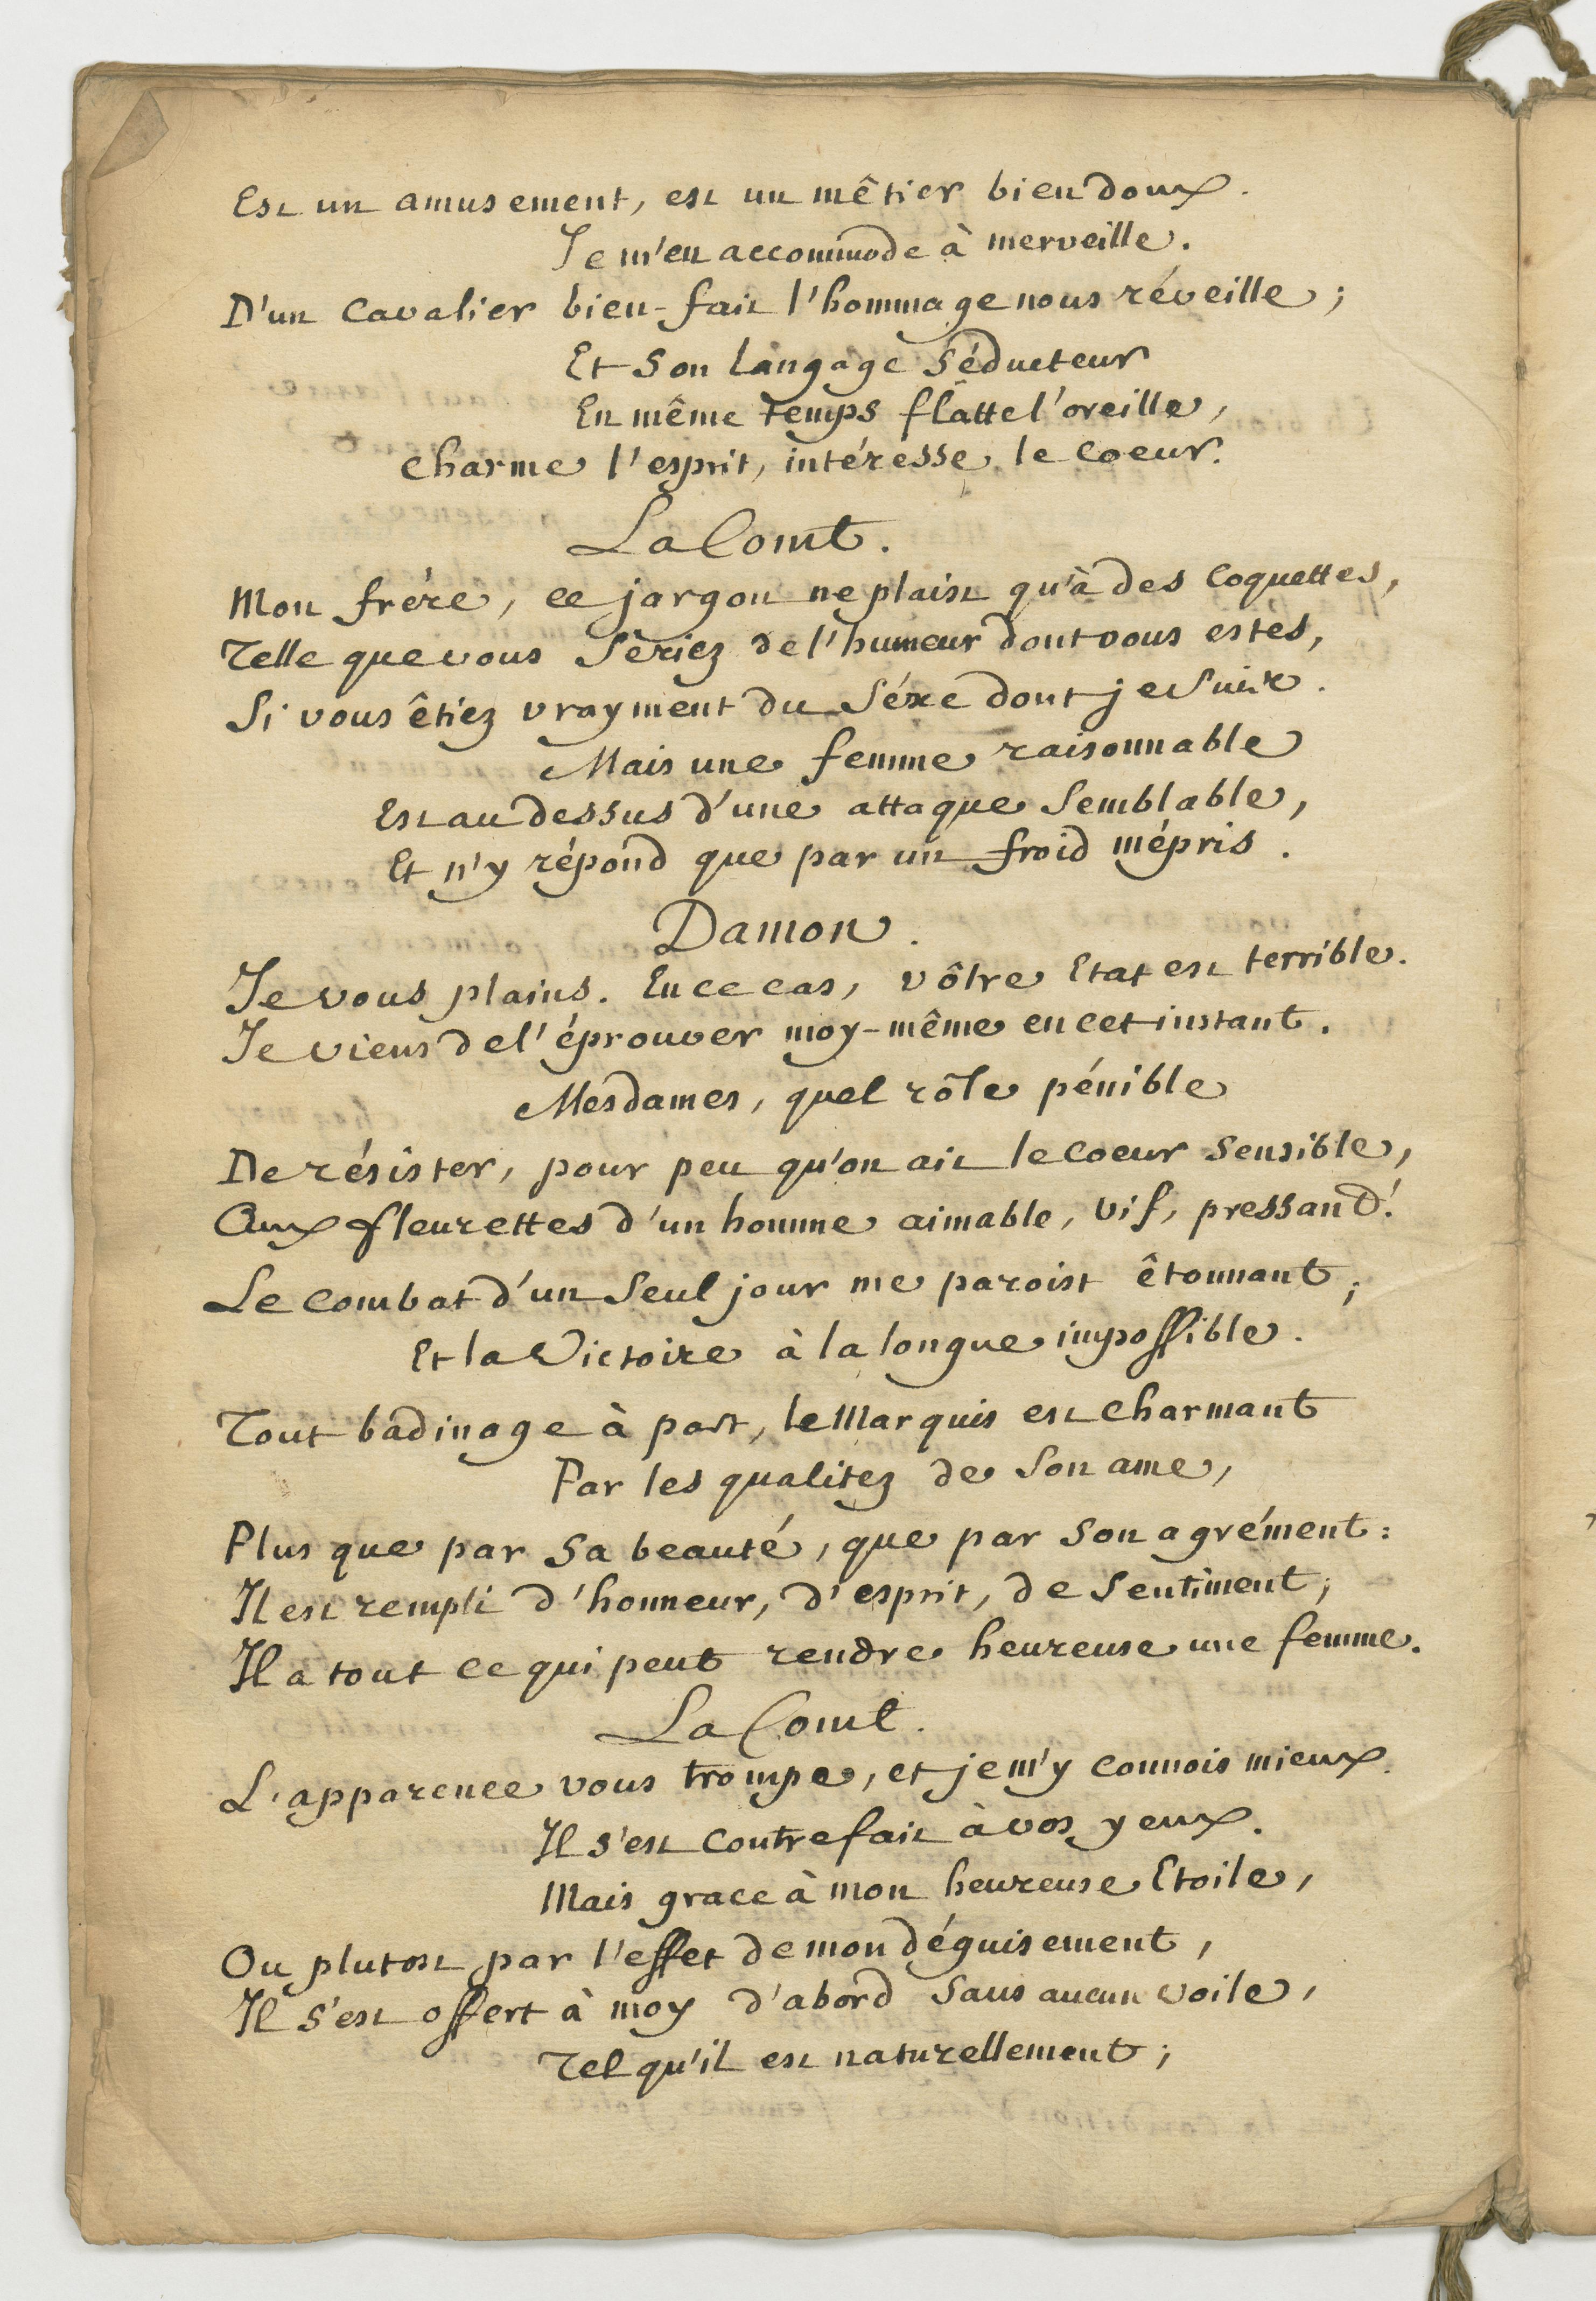 Est un amusement, est un mêtier bien doux.
Je m'en accommode à merveille.
D'un Cavalier bien-fait l'hommage nous réveille;
Et son langage séducteur
En même temps flatte l'oreille,
Charme l'esprit, intéresse le Coeur.
La Comt.
Mon frére, ce jargon ne plaist qu'à des Coquettes,
Telle que vous seriez de l'humeur dont vous estes,
Si vous êtiez vrayment du séxe dont je suis.
Mais une femme raisonnable
Est au dessus d'une attaque semblable,
Et n'y répond que par un froid mépris.
Damon.
Je vous plains. En ce cas, vôtre Etat est terrible.
Je viens de l'éprouver moy-même en cet instant.
Mesdames, quel rôle pénible
De résister, pour peu qu'on ait le Coeur sensible,
Aux fleurettes d'un homme aimable, vif, pressant!
Le Combat d'un seul jour me paroist êtonnant;
Et la Victoire à la longue impossible.
Tout badinage à part, le Marquis est charmant
Par les qualitez de son ame,
Plus que par sa beauté, que par son agrément:
Il est rempli d'honneur, d'esprit, de sentiment;
Il a tout ce qui peut rendre heureuse une femme.
La Comt.
L'apparence vous trompe, et je m'y connois mieux.
Il s'est contrefait à vos yeux.
Mais grace à mon heureuse Etoile,
Ou plutost par l'effet de mon déguisement,
Il s'est offert à moy d'abord sans aucun voile,
Tel qu'il est naturellement;